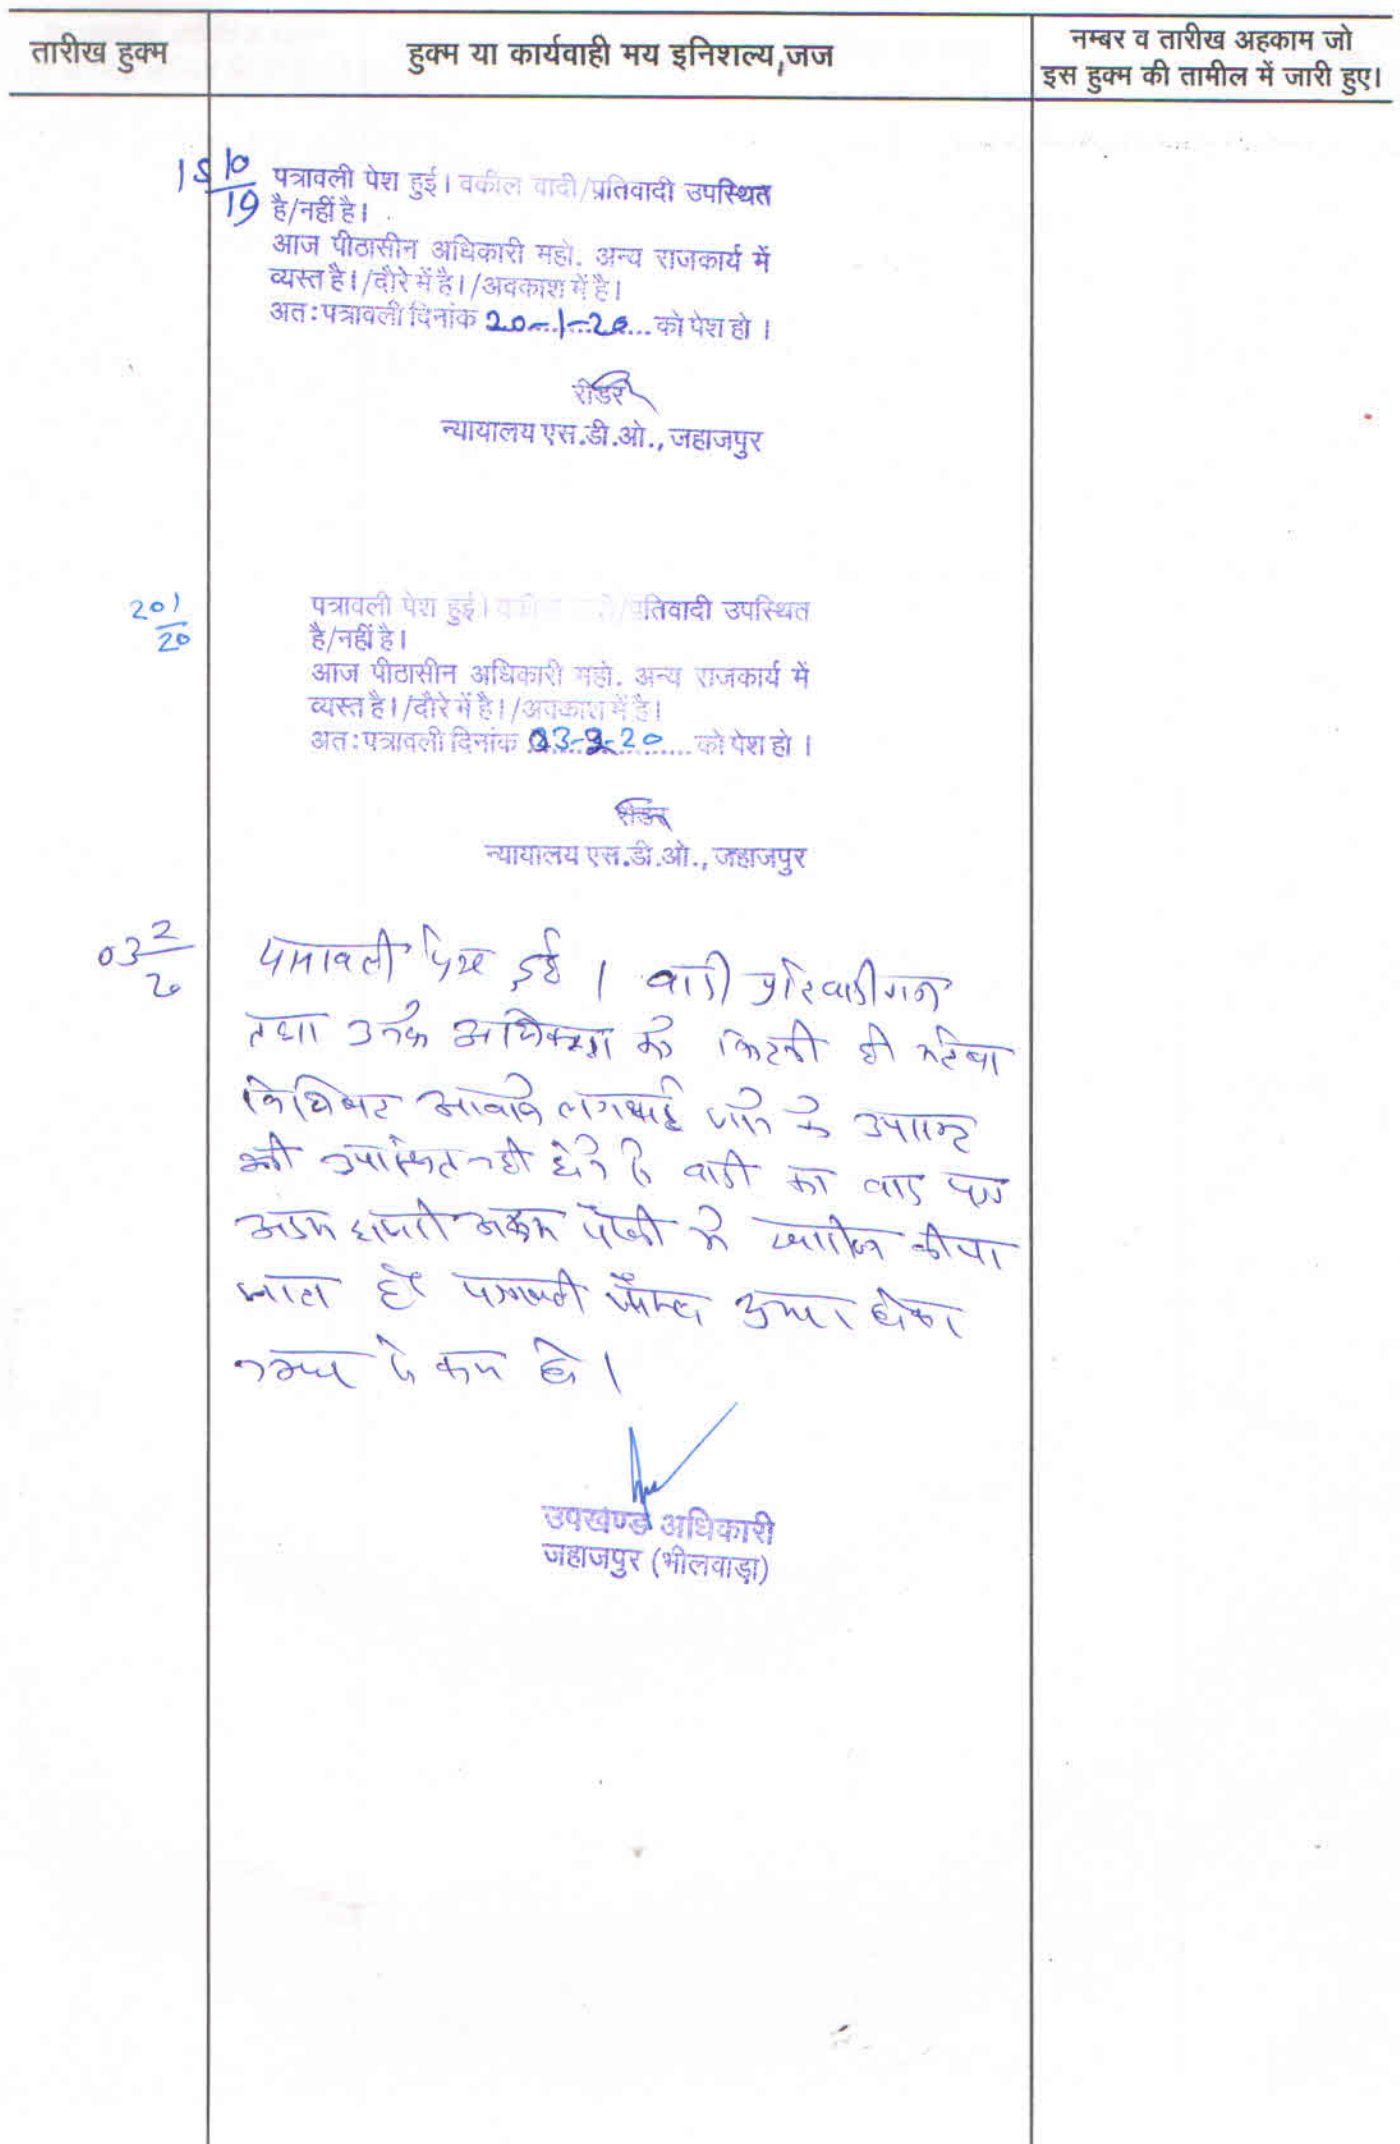 तारीख हुक्म
हुक्म या कार्यवाही मय इनिशल्य,जज
नम्बर व तारीख अहकाम जो
इस हुक्म की तामील में जारी हुए।
15 10/19
पत्रावली पेश हुई। वकील वादी/प्रतिवादी उपस्थित
है/नहीं है।
आज पीठासीन अधिकारी महो. अन्य राजकार्य में
व्यस्त है।/दौरे में है।/अवकाश में है।
अतः पत्रावली दिनांक 20-1-20 को पेश हो ।
रीडर
न्यायालय एस.डी.ओ., जहाजपुर
20 1/20
पत्रावली पेश हुई। वकील वादी/प्रतिवादी उपस्थित
है/नहीं है।
आज पीठासीन अधिकारी महो. अन्य राजकार्य में
व्यस्त है।/दौरे में है।/अवकाश में है।
अतः पत्रावली दिनांक 03-2-20 को पेश हो ।
रीडर
न्यायालय एस.डी.ओ., जहाजपुर
03 2/20
पत्रावली पेश हुई । वादी प्रतिवादीगण
तथा उनके अधिवक्ता को कितनी ही मर्तबा
आवाजे लगवाई जाने के उपरान्त
भी उपस्थित नही होने से वादी का वाद पत्र
अदम हाजरी अदम पैरवी मे खारीज कीया
जाता है। पत्रावली फैसल शुमार होकर
नम्बर से कम हो ।
उपखण्ड अधिकारी
जहाजपुर (भीलवाड़ा)